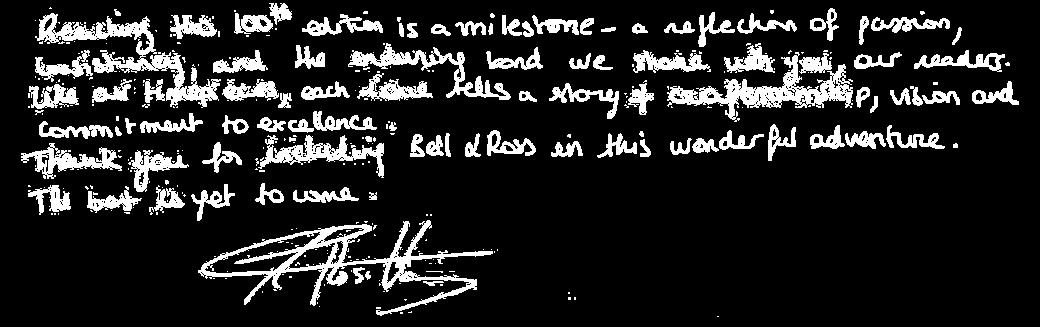 Reaching this 100th edition is a milestone - a reflection of passion,
consistency, and the enduring bond we share with you, our readers.
Like our timepieces, each one tells a story of craftsmanship, vision and
commitment to excellence.
Thank you for including Bell & Ross in this wonderful adventure.
The best is yet to come.